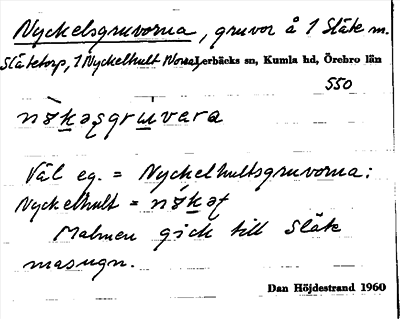 Nyckelsgruvorna, gruvor å 1 Släte m.
Slätetorp, 1 Nyckelhult Norra, Lerbäcks sn, Kumla hd, Örebro län
550
Väl eg. = Nyckelhultsgruvorna;
Nyckelhult =
Malmen gick till Släte
masugn.
Dan Höjdestrand 1960